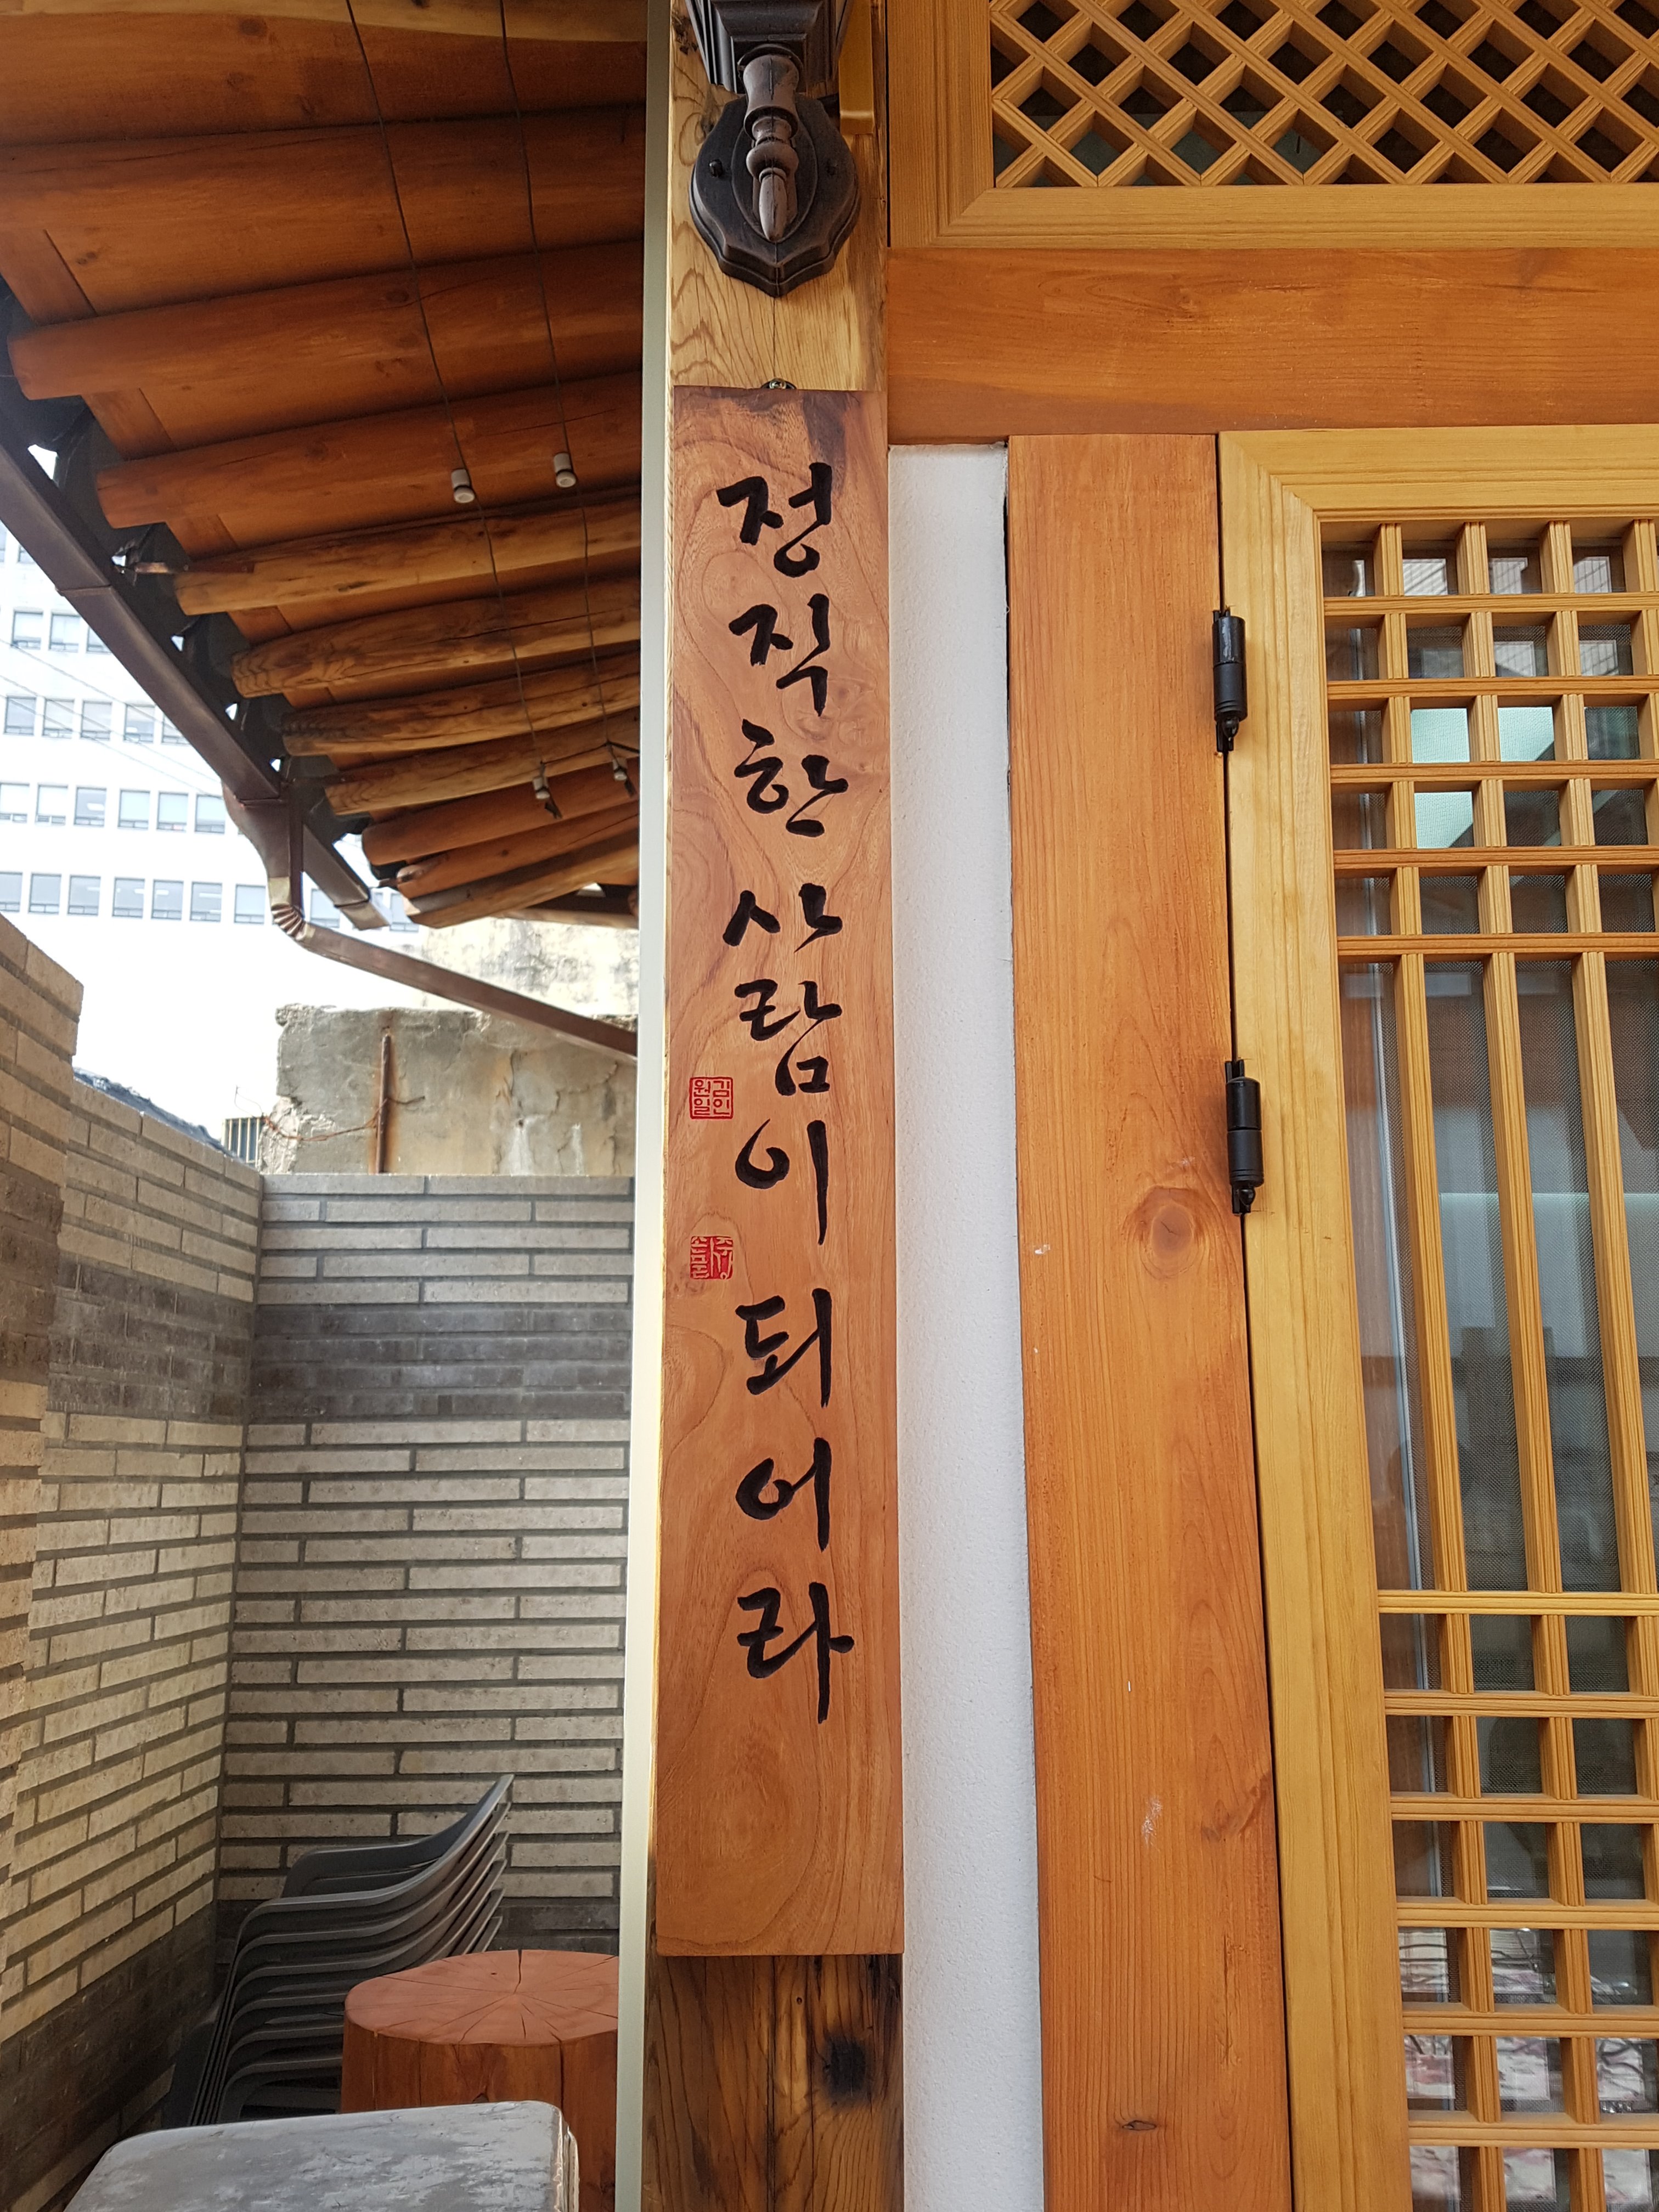 정직한 사람이 되어라
김인
원일